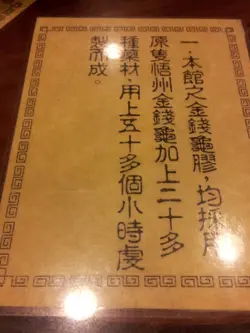 一：本館之金錢龜膠，均採用
原隻梧州金錢龜加上二十多
種藥材，用上五十多個小時虔
製而成。